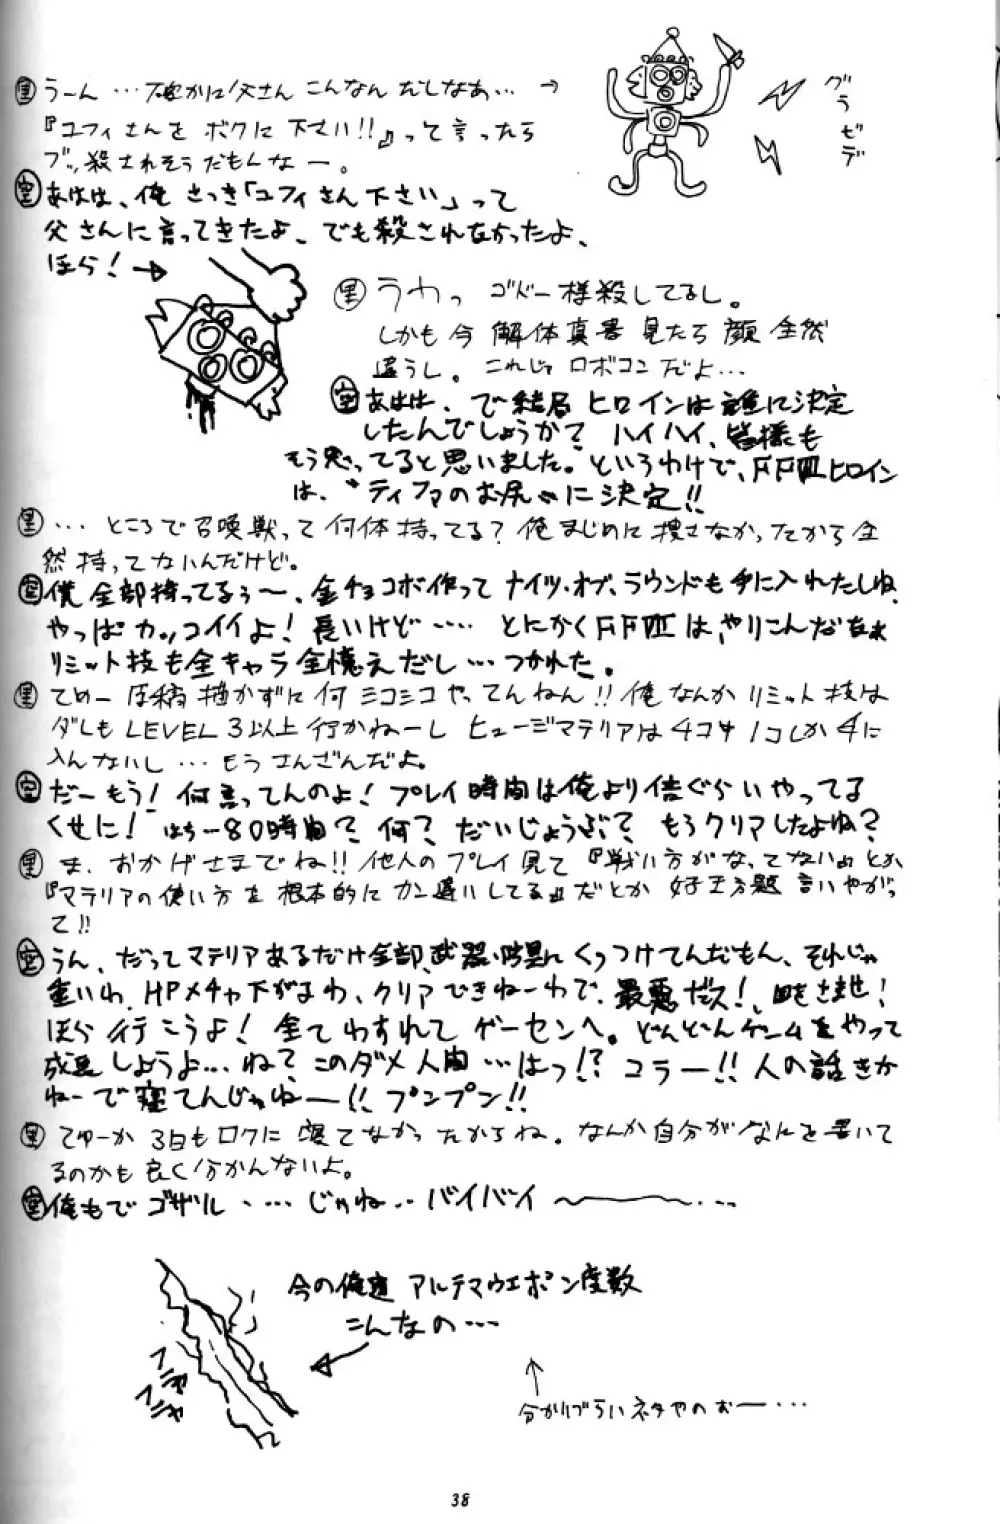 黒 うーん…確かに父さんこんなんだしなあ… →
『ユフィさんをボクに下さい!!』って言ったら
ブッ殺されそうだもんなー。
グラ
ビデ
空 あはは、俺さっき「ユフィさん下さい」って
父さんに言ってきたよ、でも殺されなかったよ、
ほら!→
黒 うわっ ゴドー様殺してるし。
しかも今 解体真書 見たら 顔 全然
違うし。これじゃ ロボコンだよ…
空 あはは、で結局ヒロインは誰に決定
したんでしょうか? ハイハイ、皆様も
もう思ってると思いました。というわけで、FFⅦヒロイン
は、"ティファのお尻"に決定!!
黒 …ところで召喚獣って何体持ってる?俺まじめに捜さなかったから全
然持ってないんだけど。
空 僕全部持ってるぅ〜、金チョコボ作ってナイツ・オブ・ラウンドも手に入れたしね、
やっぱカッコイイよ!長いけど…… とにかくFFⅦは、やりこんだなぁ
リミット技も全キャラ全憶えだし…つかれた。
黒 てめー原稿描かずに何ミコミコやってんねん!!俺なんかリミット技は
ダレもLEVEL3以上行かねーし ヒュージマテリアは4コ中1コしか手に
入んないし…もうさんざんだよ。
空 だーもう!何言ってんのよ!プレイ時間は俺より倍ぐらいやってる
くせに! はちー80時間?何?だいじょうぶ? もうクリアしたよね?
黒 ま、おかげさまでね!!他人のプレイ見て『戦い方がなってない』とか
『マテリアの使い方を根本的にカン違いしてる』だとか 好き方題 言いやがっ
て!!
空 うん、だってマテリアあるだけ全部、武器・防具にくっつけてんだもん、それじゃ
重いわ、HPメチャ下がるわ、クリアできねーわで、最悪だス!、目をさませ!
ほら行こうよ! 全てわすれて ゲーセンへ。どんどんゲームをやって
成長しようよ…ね?このダメ人間…はっ!? コラー!!人の話きか
ねーで寝てんじゃねー!!プンプン!!
黒 てゆーか3日もロクに寝てなかったからね。なんか自分がなんを書いて
るのかも良く分かんないよ。
空 俺もでゴザル・…じゃね‥バイバイ〜――…
今の俺達 アルテマウエポン度数
こんなの…
フニャ
フニャ
分かりづらいネタやのおー…
38